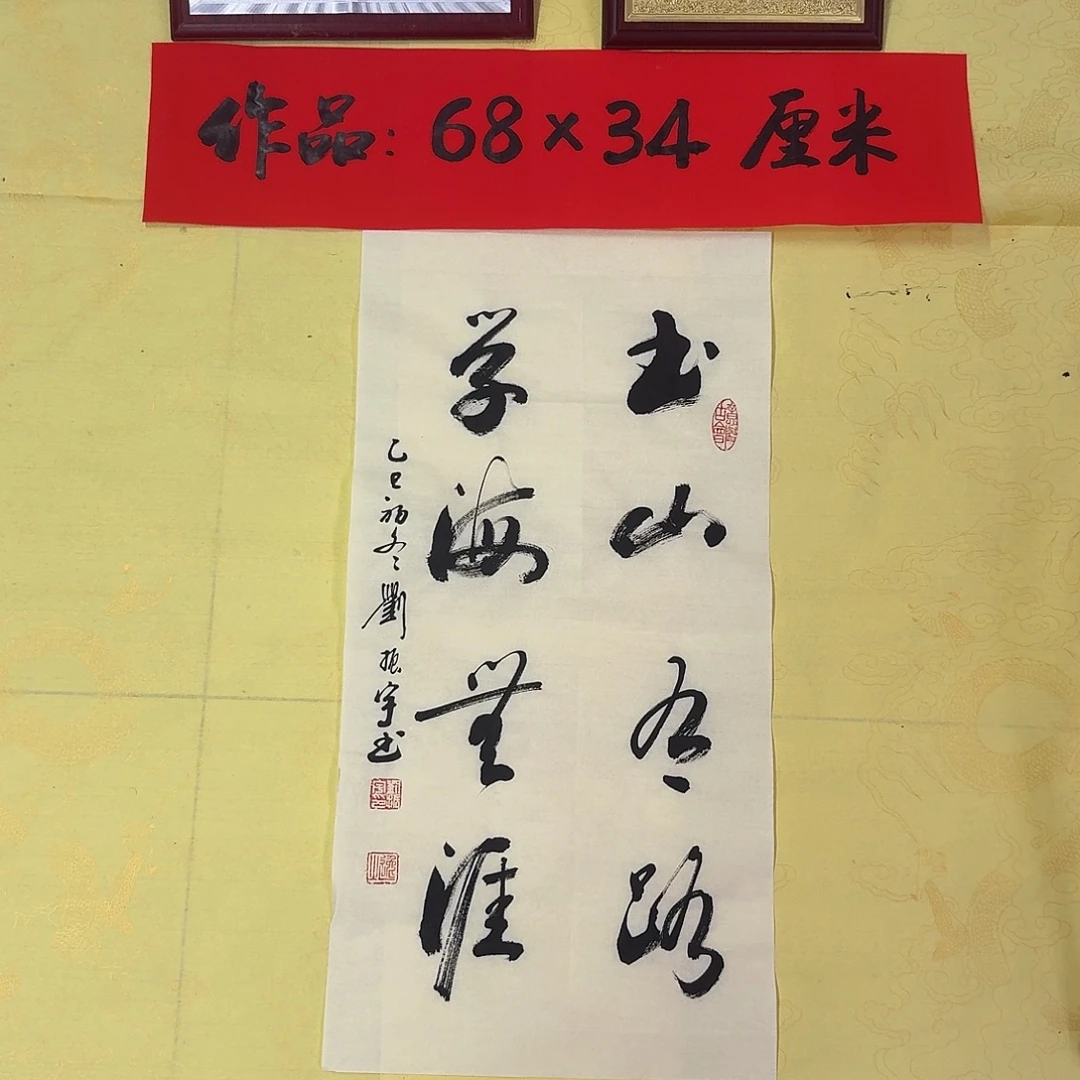 作品：68×34厘米
书山有路
学海無涯
乙巳初冬刘振宇书